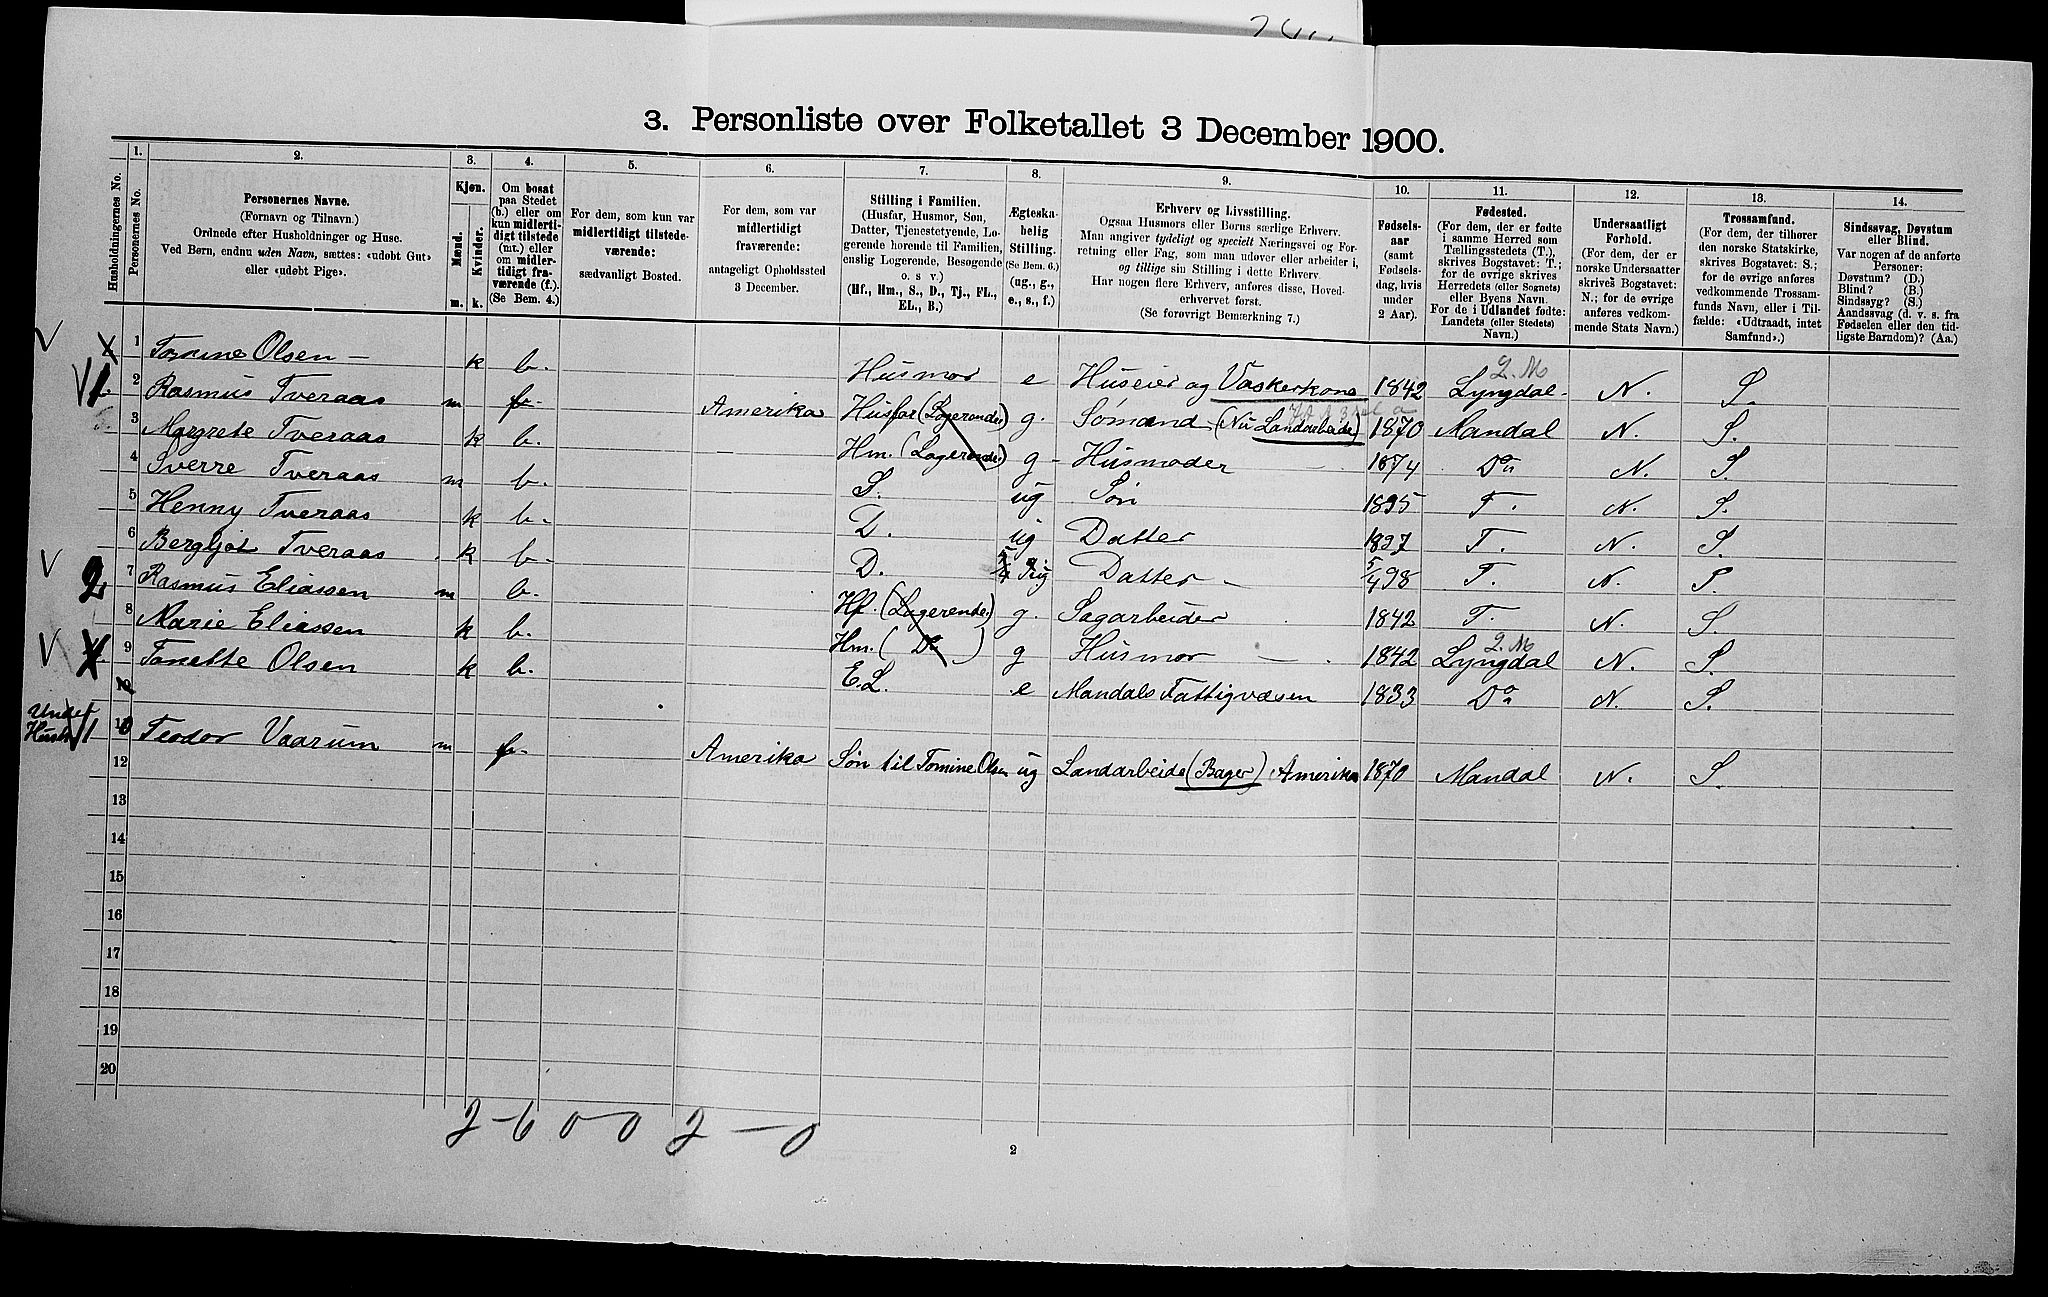 3. Personliste over Folketallet 3 December 1900.
1. 2. 3. 4. 5. 6. 7. 8. 9. 10. 11. 12. 13. 14.
Husholdningernes No.
Personernes No.
Personernes Navne.
(Fornavn og Tilnavn.)
Ordnede efter Husholdninger og Huse.
Ved Børn, endnu uden Navn, sættes: «udøbt Gut»
eller «udøbt Pige».
Kjøn.
Mænd.
Kvinder.
m. k.
Om bosat
paa Stedet
(b.) eller om
kun midlerti-
digt tilstede
(mt.) eller
om midler-
tidigt fra-
værende (f.).
(Se Bem. 4.)
For dem, som kun var
midlertidigt tilstede-
værende:
sædvanligt Bosted.
For dem, som var
midlertidigt
fraværende:
antageligt Opholdssted
3 December.
Stilling i Familien.
(Husfar, Husmor, Søn,
Datter, Tjenestetyende, Lo-
gerende hørende til Familien,
enslig Logerende, Besøgende
o. s v.)
(Hf., Hm., S., D., Tj., FL.,
EL., B.)
Ægteska-
belig
Stilling.
(Se Bem. 6.)
(ug., g.,
e., s., f.)
Erhverv og Livsstilling.
Ogsaa Husmors eller Børns særlige Erhverv.
Man angiver tydeligt og specielt Næringsvei og For-
retning eller Fag, som man udøver eller arbeider i,
og tillige sin Stilling i dette Erhverv.
Har nogen flere Erhverv, anføres disse, Hoved-
erhvervet først.
(Se forøvrigt Bemærkning 7.)
Fødsels-
aar
(samt
Fødsels-
dag, hvis
under
2 Aar).
Fødested.
(For dem, der er fødte
i samme Herred som
Tællingsstedets (T.),
skrives Bogstavet: T.;
for de øvrige skrives
Herredets (eller Sognets)
eller Byens Navn.
For de i Udlandet fødte:
Landets (eller Stedets)
Navn.)
Undersaatligt
Forhold.
(For dem, der er
norske Undersaatter
skrives Bogstavet:
N.; for de øvrige
anføres vedkom-
mende Stats Navn.)
Trossamfund.
(For dem, der tilhører
den norske Statskirke,
skrives Bogstavet: S.;
for de øvrige anføres
vedkommende Trossam-
funds Navn, eller i Til-
fælde: «Udtraadt, intet
Samfund».)
Sindssvag, Døvstum
eller Blind.
Var nogen af de anførte
Personer:
Døvstum? (D.)
Blind? (B.)
Sindssyg? (S.)
Aandssvag (d. v. s. fra
Fødselen eller den tid-
ligste Barndom)? (Aa.)
1 Tomine Olsen – k b. Husmor e Huseier og Vaskerkone 1842 Lyngdal N. S.
2 Rasmus Tveraas m f. Amerika Husfar (Logerende) g. Sømand (Nu Landarbeide) 1870 Mandal N. S.
3 Margrete Tveraas k b. Hm. (Logerende) g Husmoder 1874 Do N. S.
4 Sverre Tveraas m b. S. ug Søn 1895 T. N. S.
5 Henny Tveraas k b. D. ug Datter 1897 T. N. S.
6 Bergljot Tveraas k b. D. ug Datter 5/4 98 T. N. S.
2 7 Rasmus Eliassen m b. Hf. (Logerende) g. Sagarbeider 1842 T. N. S.
8 Marie Eliassen k b. Hm. (Do) g Husmor 1842 Lyngdal N. S.
9 Tonette Olsen k b. E.L. e Mandals Fattigvæsen 1833 Do N. S.
10
Under
Teodor Vaarum m f. Amerika Søn til Tomine Olsen ug Landarbeide (Bager) Amerika 1870 Mandal N. S.
12
13
14
15
16
17
18
19
20
2-6 0-0 2-0
2